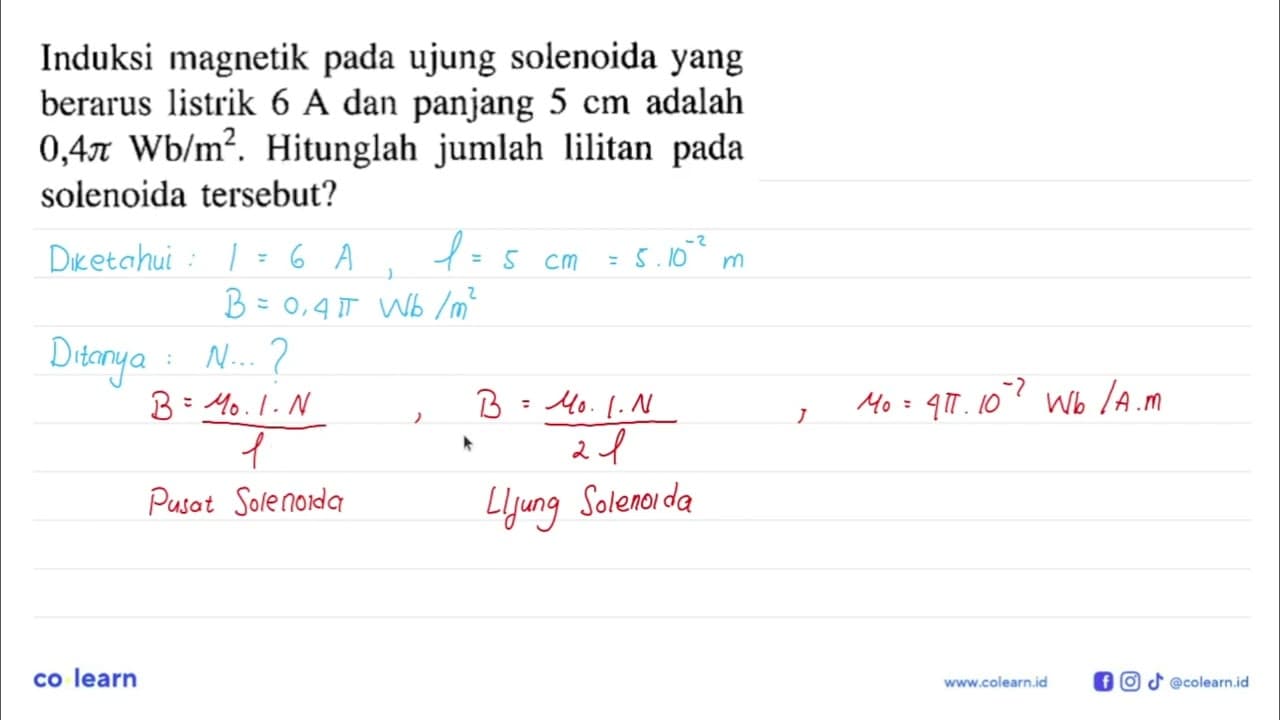 Induksi magnetik pada ujung solenoida yang
berarus listrik 6 A dan panjang 5 cm adalah
0,4π Wb/m². Hitunglah jumlah lilitan pada
solenoida tersebut?
Diketahui : I = 6 A , l = 5 cm = 5.10⁻² m
B = 0,4π Wb/m²
Ditanya : N... ?
B = μ₀.I.N / l , B = μ₀.I.N / 2l , μ₀ = 4π.10⁻⁷ Wb/A.m
Pusat Solenoida Ujung Solenoida
co learn www.colearn.id @colearn.id